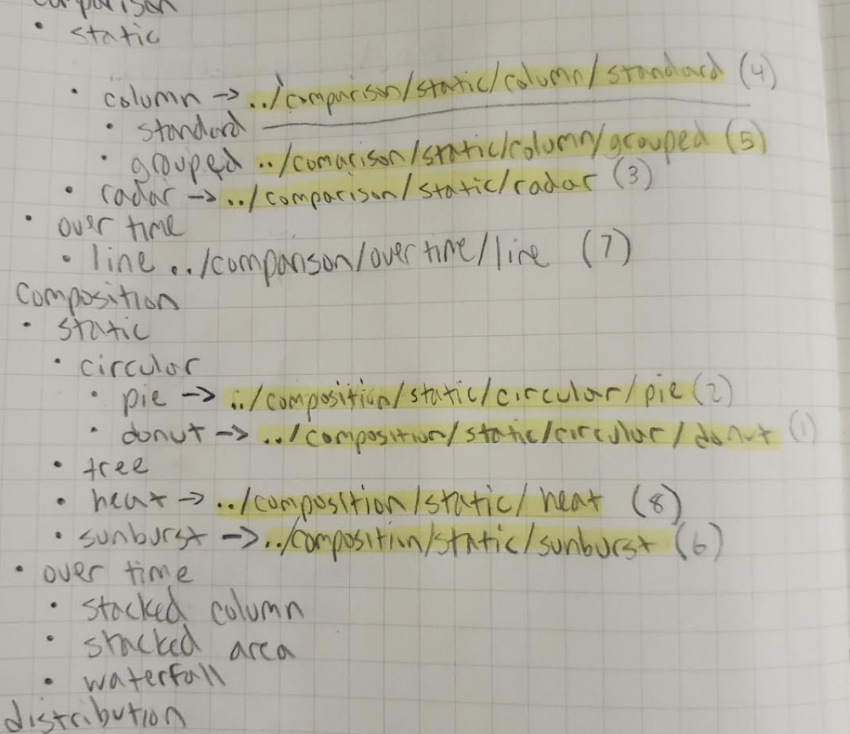 comparison
• static
• column -> ../comparison/static/column/standard (4)
• standard
• grouped ../comarison/static/column/grouped (5)
• radar -> ../comparison/static/radar (3)
• over time
• line ../comparison/over time/line (7)
Composition
• static
• circular
• pie -> ../composition/static/circular/pie (2)
• donut -> ../composition/static/circular/donut (1)
• tree
• heat -> ../composition/static/heat (8)
• sunburst -> ../composition/static/sunburst (6)
• over time
• stacked column
• stacked area
• waterfall
distribution